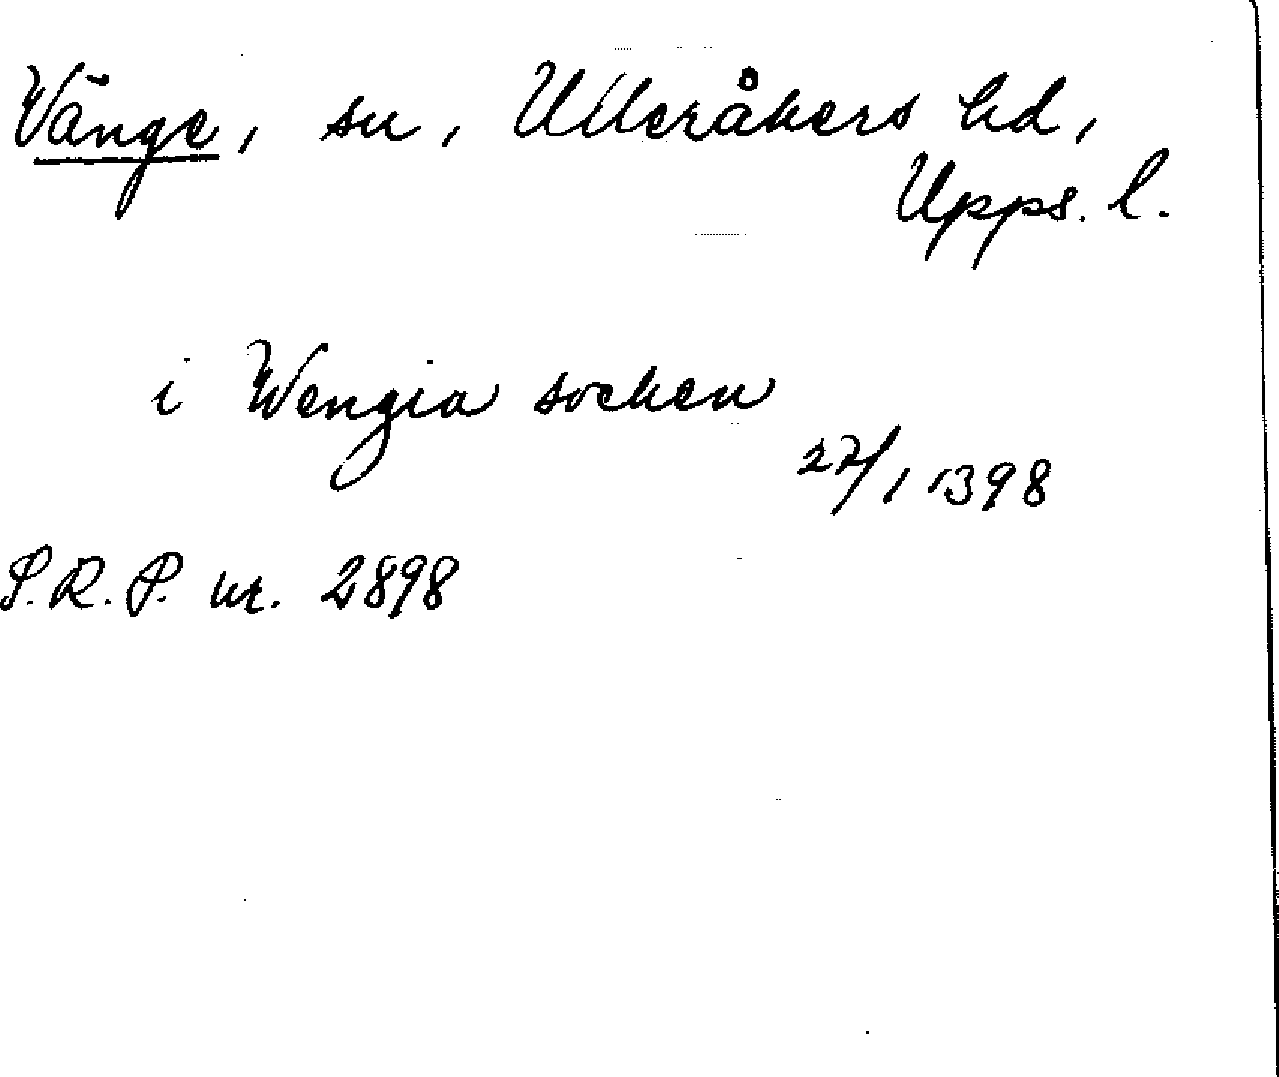 Vänge, sn, Ulleråkers hd,
Upps. l.
i Wengia socken
22/1 1398
S.R.P. nr. 2898